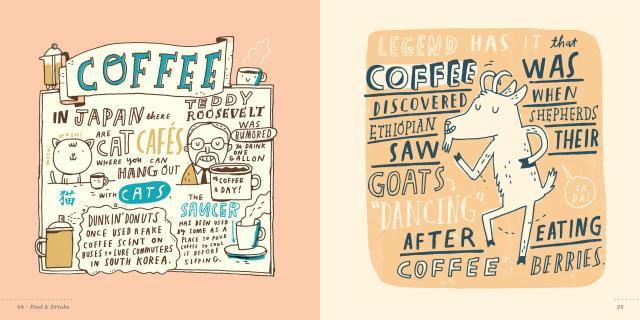 COFFEE
IN JAPAN there
ARE
CAT CAFÉS
WHERE YOU CAN
HANG OUT
WITH CATS
moshi
moshi
猫
TEDDY
ROOSEVELT
WAS
RUMORED
TO DRINK
ONE
GALLON
OF COFFEE
A DAY!
DUNKIN' DONUTS
ONCE USED A FAKE
COFFEE SCENT ON
BUSES TO LURE COMMUTERS
IN SOUTH KOREA.
THE
SAUCER
HAS BEEN USED
BY SOME AS A
PLACE TO POUR
COFFEE TO COOL
IT BEFORE
SIPPING.
94 · Food & Drinks
LEGEND HAS IT that
COFFEE WAS
DISCOVERED WHEN
ETHIOPIAN SHEPHERDS
SAW THEIR
GOATS
"DANCING"
TA
DA!
AFTER EATING
COFFEE BERRIES.
95